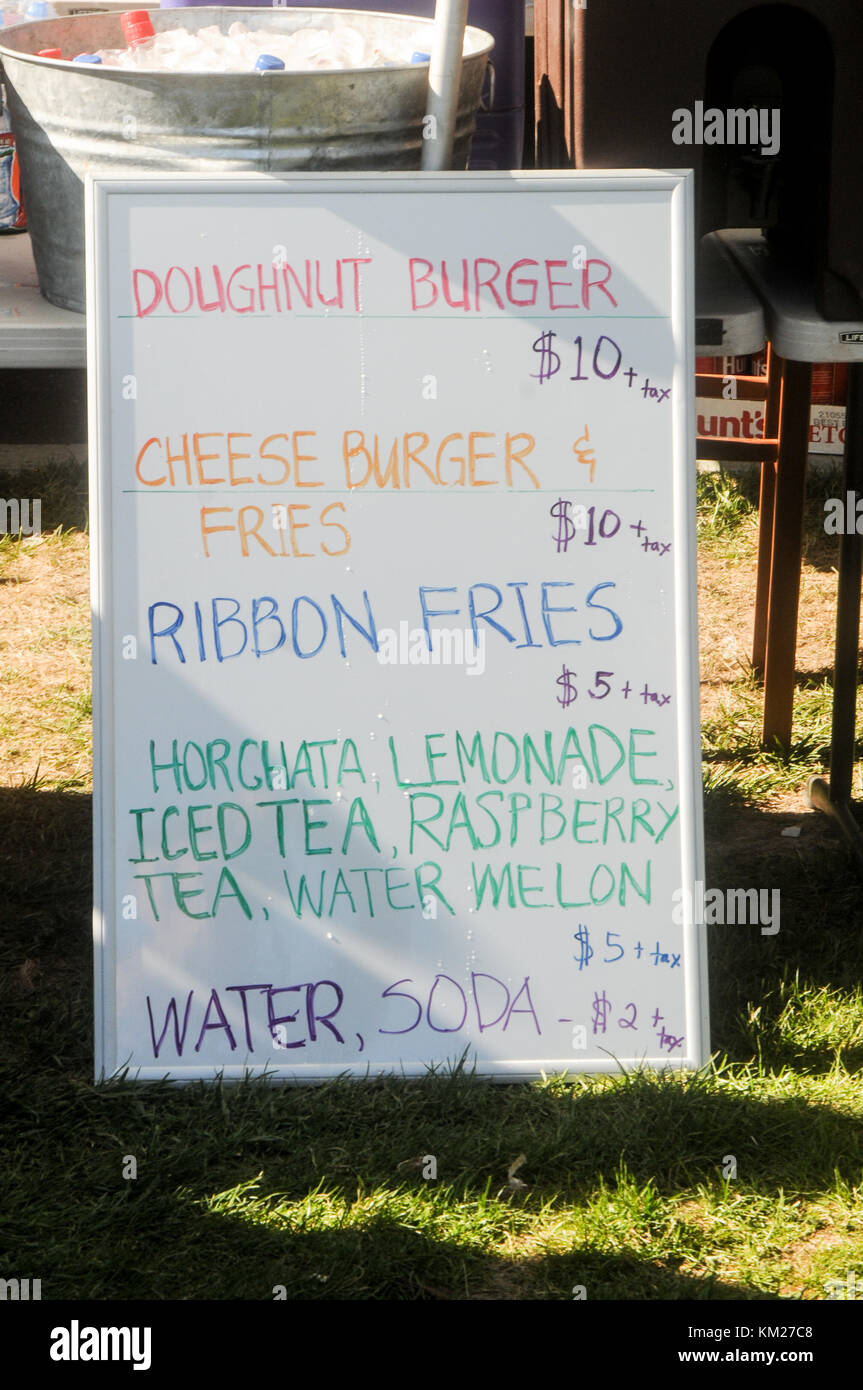 DOUGHNUT BURGER
$10 + tax
CHEESE BURGER &
FRIES $10 + tax
RIBBON FRIES
$5 + tax
HORCHATA, LEMONADE,
ICED TEA, RASPBERRY
TEA, WATER MELON
$5 + tax
WATER, SODA - $2 + tax
LIFE
unt's
21055
BEST
ETC
a alamy
alamy
Image ID: KM27C8
www.alamy.com